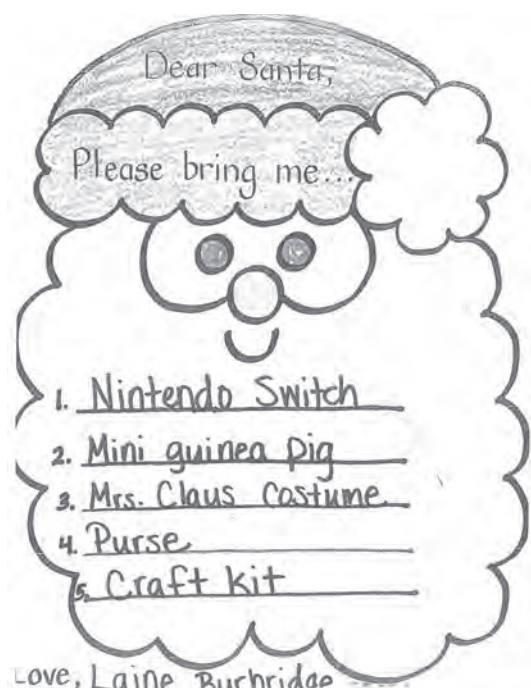 Dear Santa,
Please bring me...
1. Nintendo Switch
2. Mini guinea pig
3. Mrs. Claus Costume
4. Purse
5. Craft kit
Love, Laine Burbridge